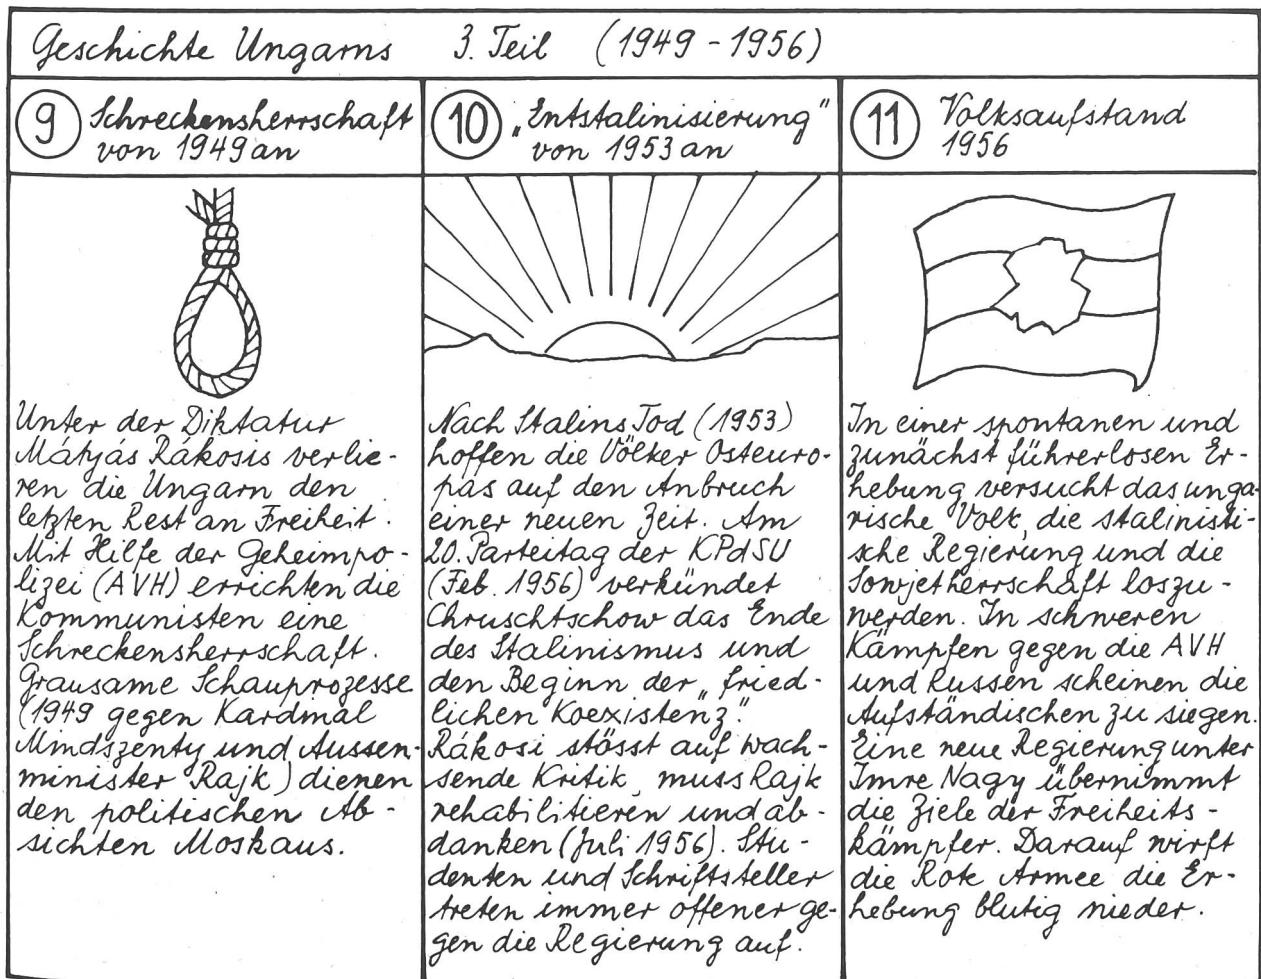 Geschichte Ungarns 3. Teil (1949 - 1956)
9 Schreckensherrschaft
von 1949 an
Unter der Diktatur
Mátyás Rákosis verlie-
ren die Ungarn den
letzten Rest an Freiheit.
Mit Hilfe der Geheimpo-
lizei (AVH) errichten die
Kommunisten eine
Schreckensherrschaft.
Grausame Schauprozesse
(1949 gegen Kardinal
Mindszenty und Aussen-
minister Rajk) dienen
den politischen Ab-
sichten Moskaus.
10 „Entstalinisierung"
von 1953 an
Nach Stalins Tod (1953)
hoffen die Völker Osteuro-
pas auf den Anbruch
einer neuen Zeit. Am
20. Parteitag der KPdSU
(Feb. 1956) verkündet
Chruschtschow das Ende
des Stalinismus und
den Beginn der „fried-
lichen Koexistenz".
Rákosi stösst auf wach-
sende Kritik, muss Rajk
rehabilitieren und ab-
danken (Juli 1956). Stu-
denten und Schriftsteller
treten immer offener ge-
gen die Regierung auf.
11 Volksaufstand
1956
In einer spontanen und
zunächst führerlosen Er-
hebung versucht das unga-
rische Volk, die stalinisti-
sche Regierung und die
Sowjetherrschaft loszu-
werden. In schweren
Kämpfen gegen die AVH
und Russen scheinen die
Aufständischen zu siegen.
Eine neue Regierung unter
Imre Nagy übernimmt
die Ziele der Freiheits-
kämpfer. Darauf wirft
die Rote Armee die Er-
hebung blutig nieder.